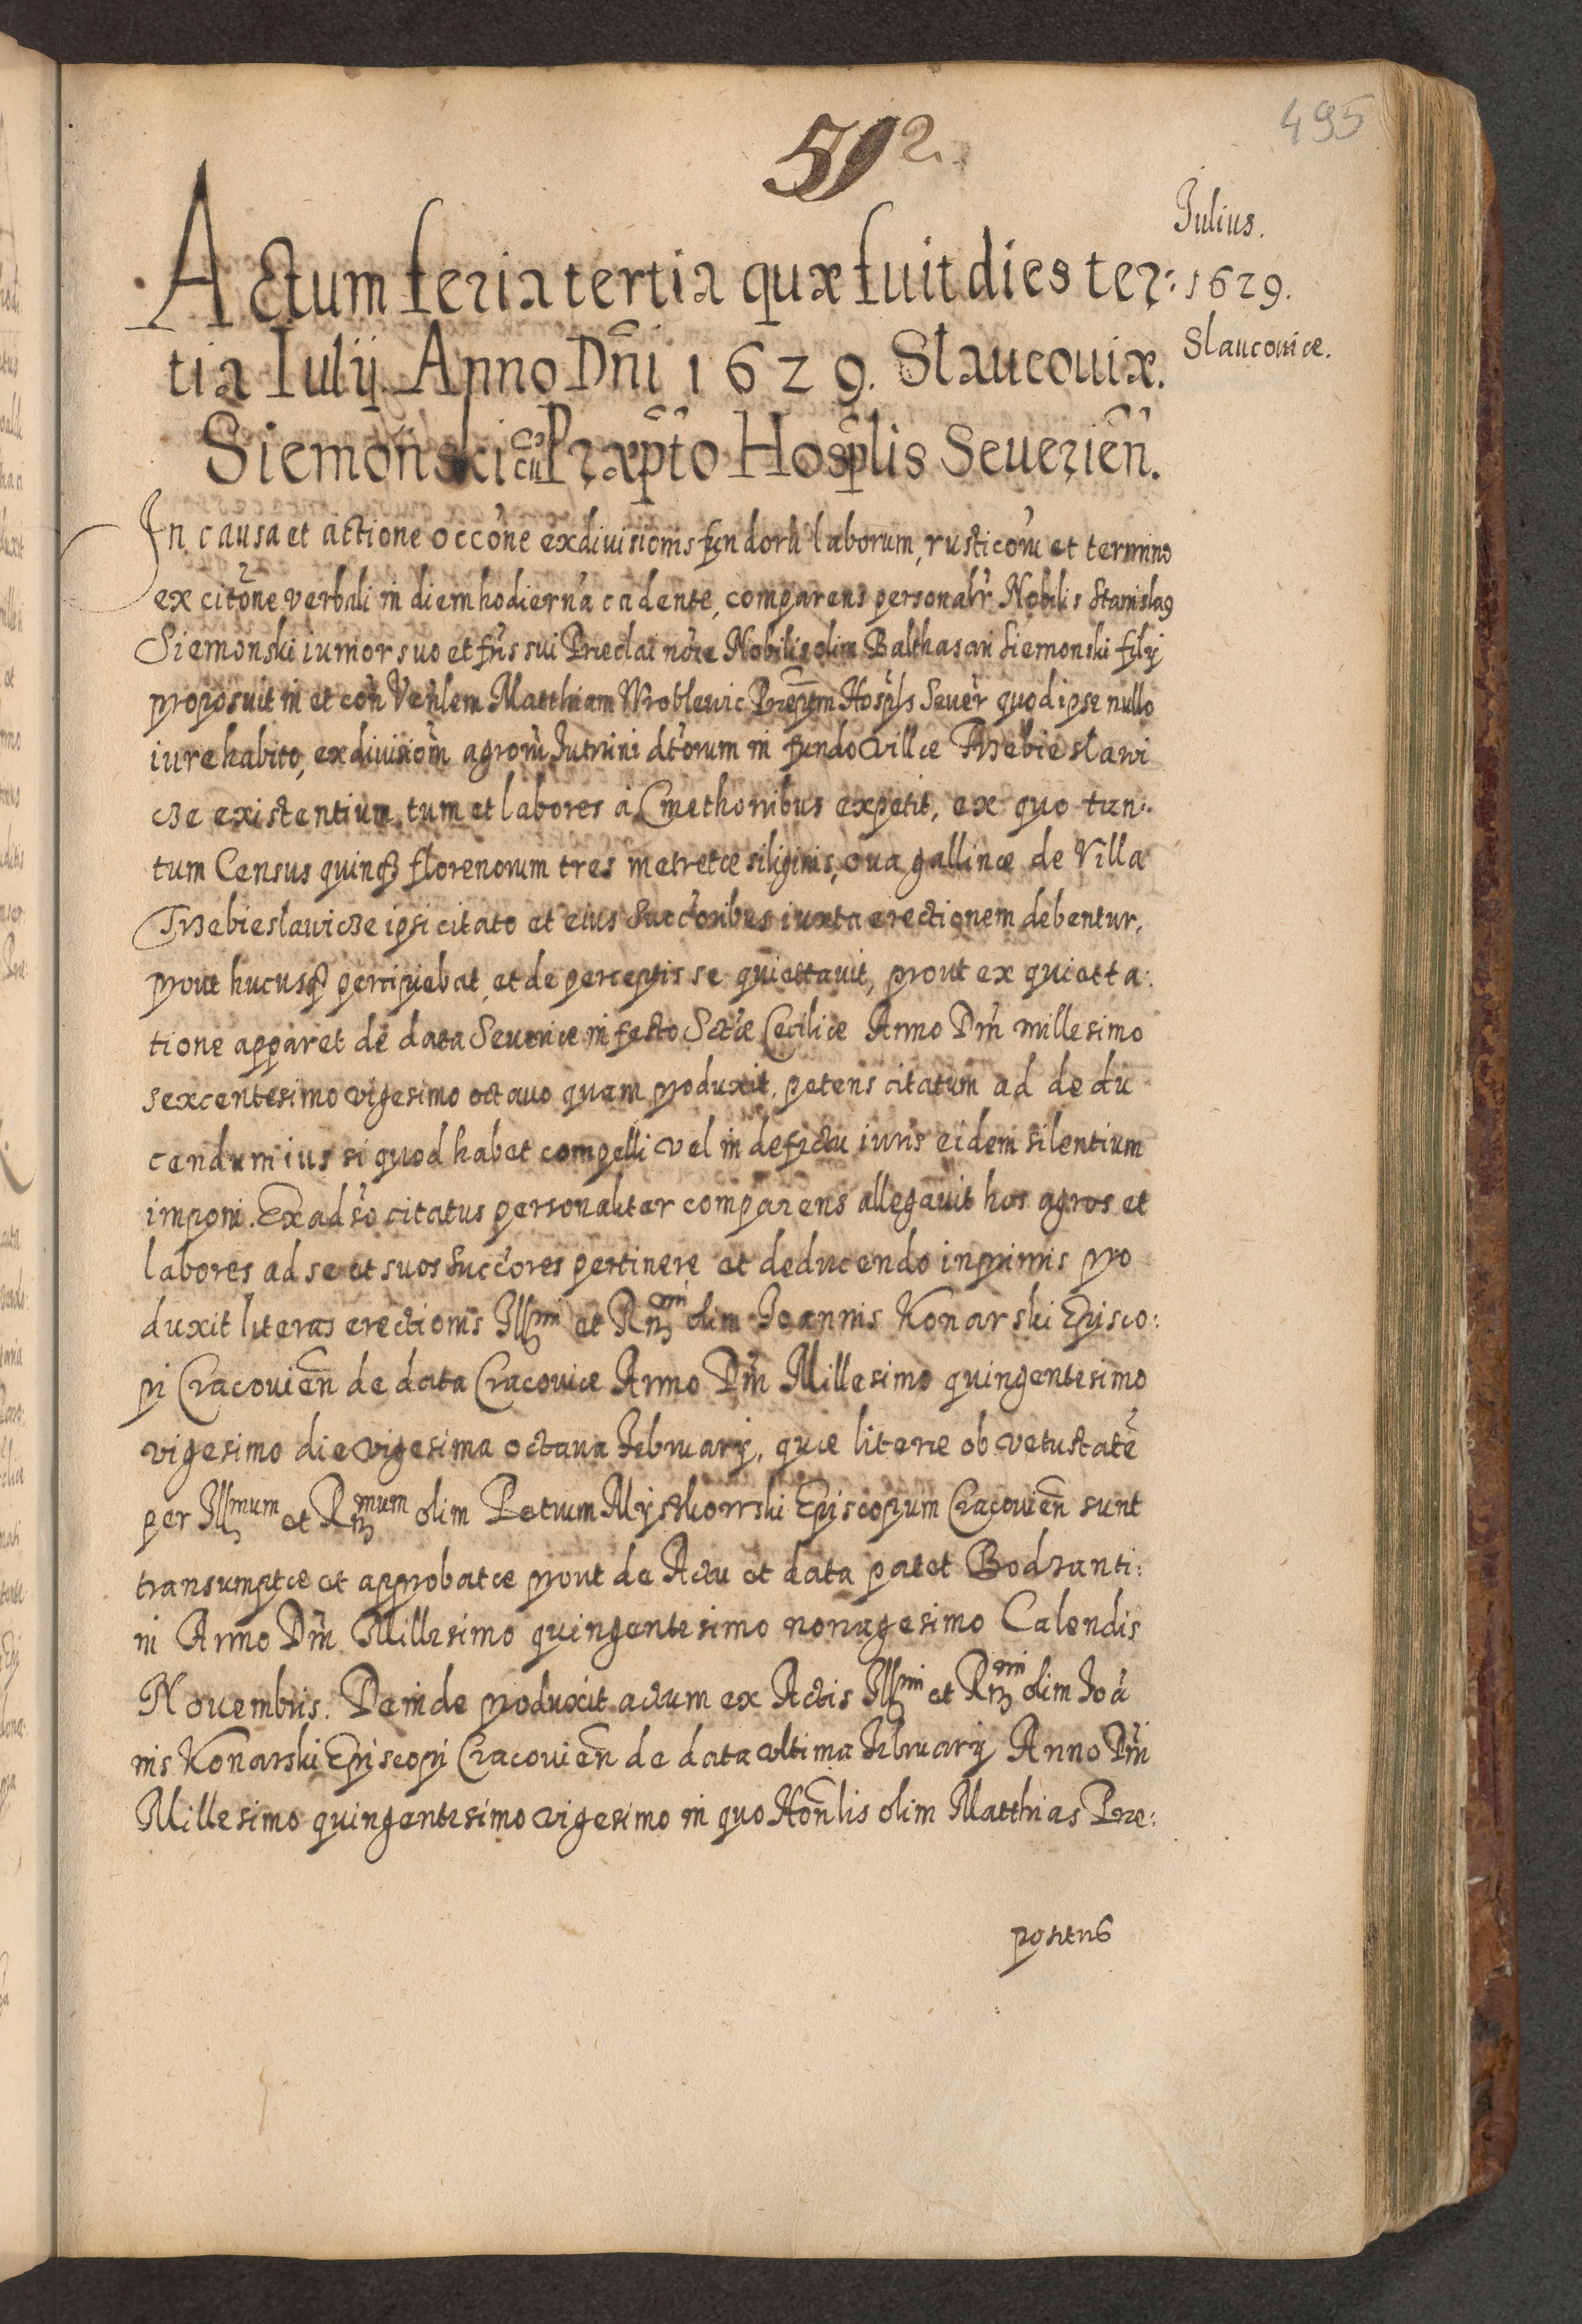 495
592.
Julius.
Actum feria tertia quæ fuit dies ter:
1629.
tia Iulij Anno Dñi 1629. Slaucouiæ.
Slaucouiæ.
Siemoński cũ Præpto Hosplis Seuerień.
In causa et actione occõne exdiuisionis fundorũ laborum, rusticorũ et termino
ex citõne verbali in diem hodiernã cadente, comparens personalr Nobilis Stanislaus
Siemonski iunior suo et fris sui Præclai nõie Nobilis olim Balthasari Siemonski filij
proposuit in et con Venlem Matthiam Wroblewic Præptm Hosplis Seuer quod ipse nullo
iure habito, exdiuisiom agrorũ Jutrzini dtorum in fundo villæ Trzebieslawi
cze existentium, tum et labores à Cmethonibus expetit, ex quo tan:
tum Census quinq florenorum tres metretæ siliginis, oua gallinæ de Villa
Trzebieslawicze ipsi citato et eius Succoribus iuxta erectionem debentur,
prout hucusq percipiebat, et de perceptis se quiettauit, prout ex quietta:
tione apparet de data Seueriæ in festo Sctæ Ceciliæ Anno Dñi millesimo
sexcentesimo vigesimo octauo quam produxit, petens citatum ad dedu
cendum ius si quod habet compelli vel in defectu iuris eidem silentium
imponi. Ex adso citatus personaliter comparens allegauit hos agros et
labores ad se et suos Succores pertinere et deducendo inprimis pro
duxit literas erectionis Illmi et Rmi olim Joannis Konarski Episco:
pi Cracouień de data Cracouiæ Anno Dñi Millesimo quingentesimo
vigesimo die vigesima octaua February, quæ literæ ob vetustatẽ
per Illmum et Rmum olim Petrum Myszkowski Episcopum Cracouień sunt
transumptæ et approbatæ prout de Actu et data patet Bodzanti:
ni Anno Dñi Millesimo quingentesimo nonagesimo Calendis
Nouembris. Deinde produxit actum ex Actis Illmi et Rmi olim Joã
nis Konarski Episcopi Cracouień de data vltima February Anno Dñi
Millesimo quingentesimo vigesimo in quo Honlis olim Matthias Præ:
positus